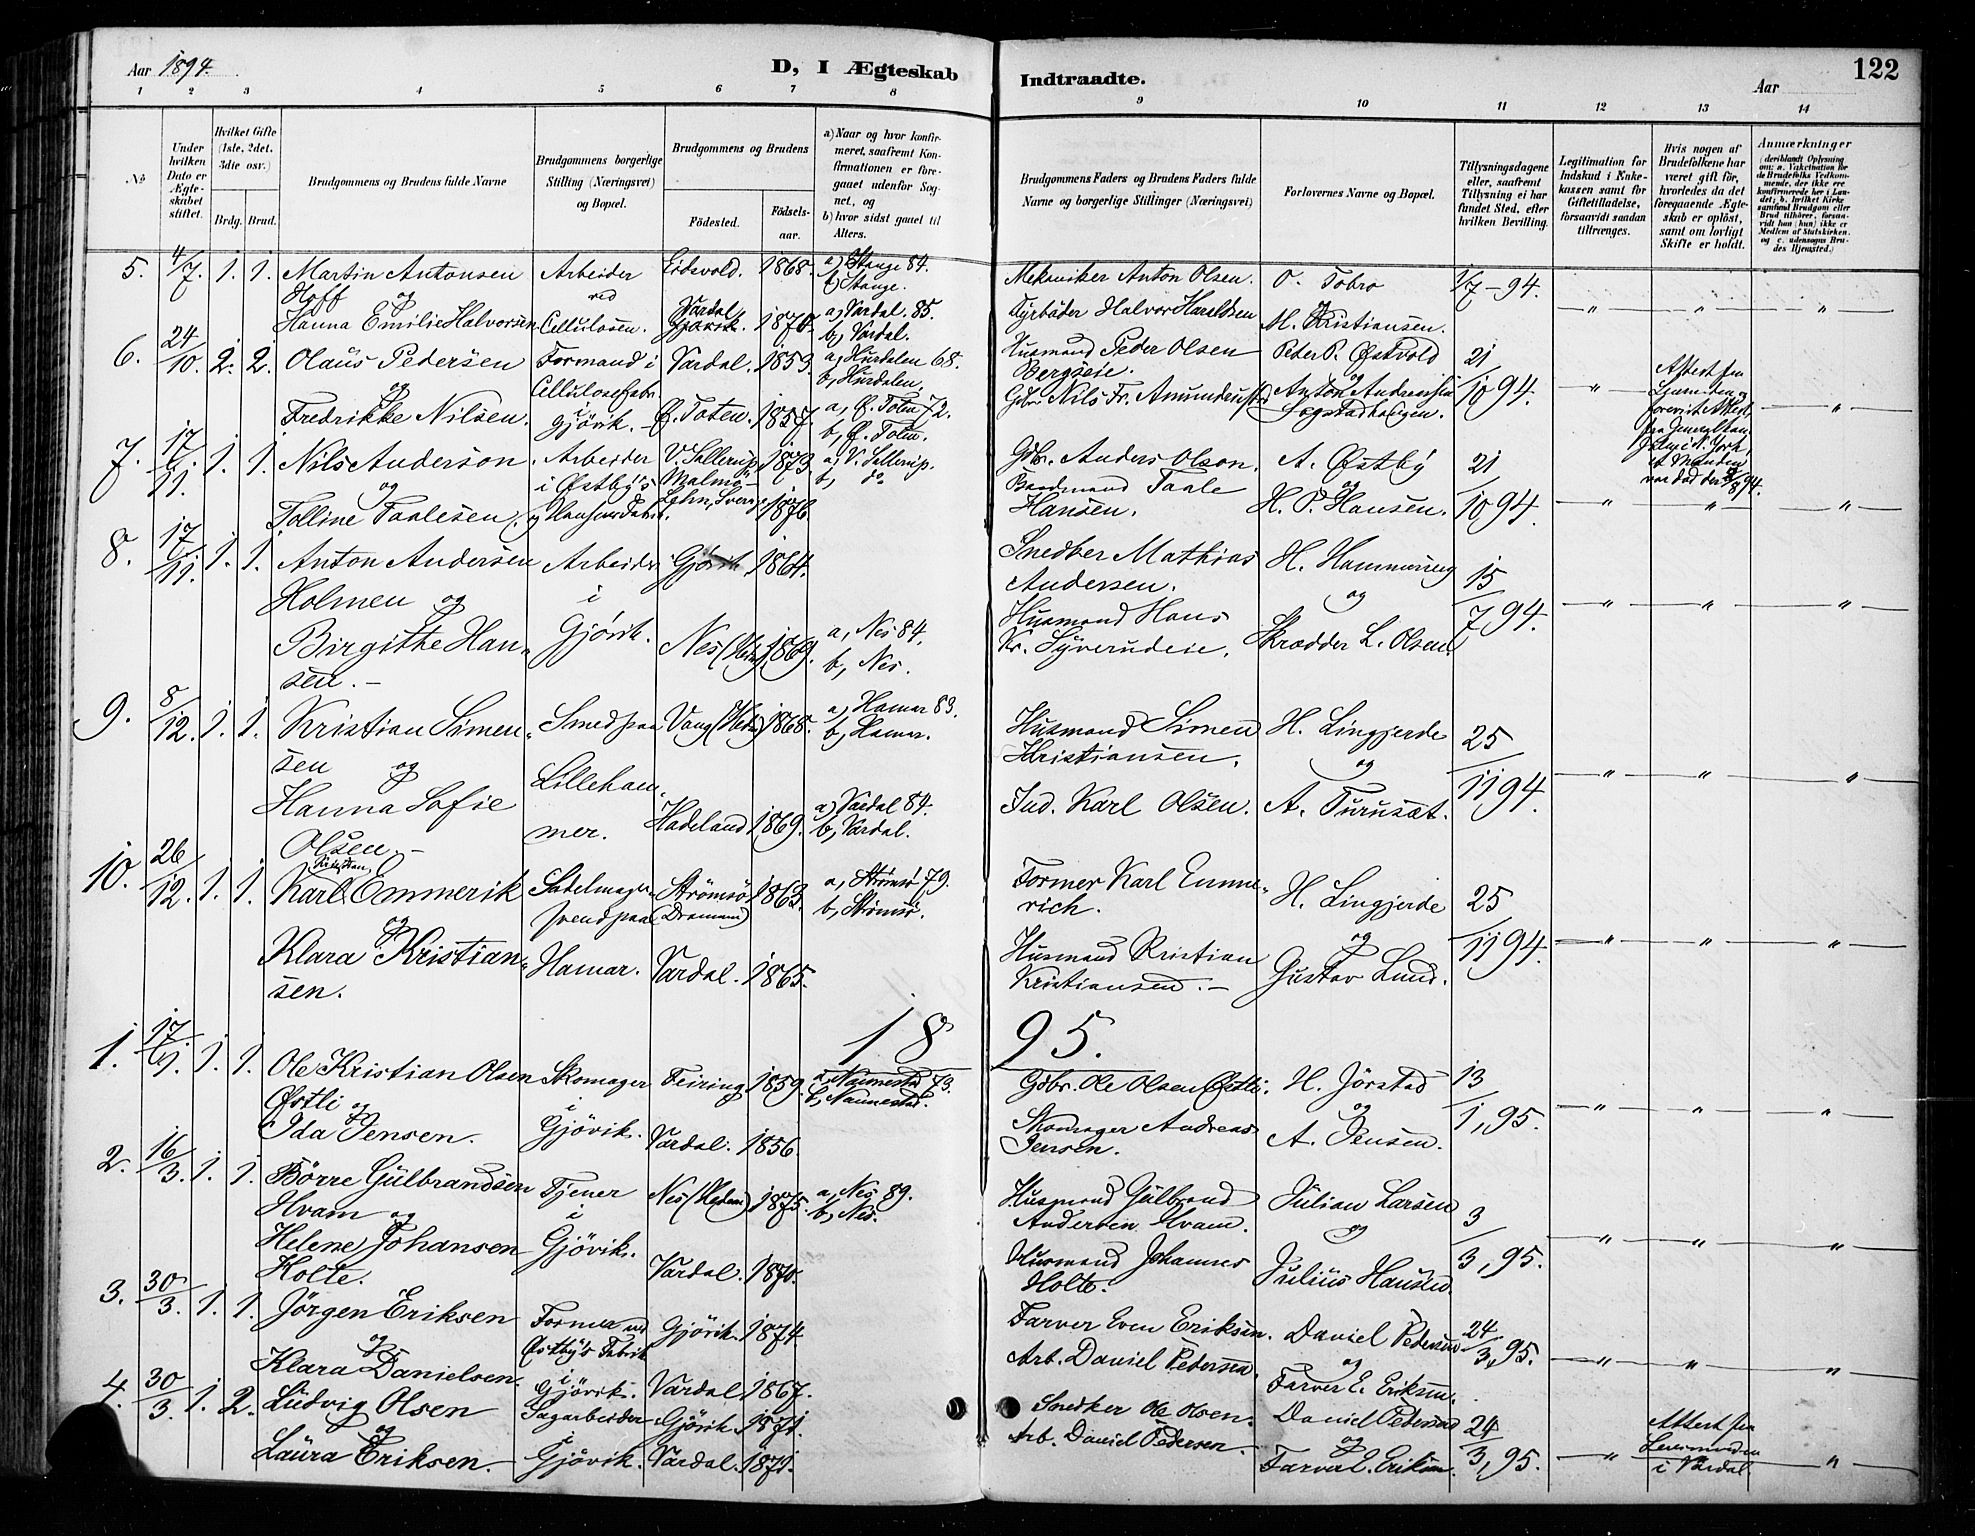 Aar 1894.
D, I Ægteskab
Indtraadte.
Aar
122
1 2 3 4 5 6 7 8 9 10 11 12 13 14
№
Under hvilken Dato er Ægteskabet stiftet.
Hvilket Gifte (1ste, 2det, 3die osv.)
Brdg. Brud.
Brudgommens og Brudens fulde Navne
Brudgommens borgerlige Stilling (Næringsvei) og Bopæl.
Brudgommens og Brudens
Fødested.
Fødselsaar.
a) Naar og hvor konfirmeret, saafremt Konfirmationen er foregaaet udenfor Sognet, og
b) hvor sidst gaaet til Alters.
Brudgommens Faders og Brudens Faders fulde Navne og borgerlige Stillinger (Næringsvei)
Forlovernes Navne og Bopæl.
Tillysningsdagene eller, saafremt Tillysning ei har fundet Sted, efter hvilken Bevilling.
Legitimation for Indskud i Enkekassen samt for Giftetilladelse, forsaavidt saadan tiltrænges.
Hvis nogen af Brudefolkene har været gift før, hvorledes da det foregaaende Ægteskab er opløst, samt om lovligt Skifte er holdt.
Anmærkninger
5. 4/7. 1. 1. Martin Antonsen Arbeider Eidsvold. 1868. a) Stange 84. Mekaniker Anton Olsen. O. Tobro 1/7 - 94.
Hoff og ved b) Stange.
Hanna Emilie Halvorsen Cellulosen. Vardal 1870. a, Vardal. 85. Fyrbøder Halvor Haraldsen M. Kristiansen. " " "
b, Vardal.
6. 24/10. 2. 2. Olaus Pedersen Formand i Vardal. 1853. a, Hurdalen 68. Husmand Peder Olsen Peder P. Østvold 21/10 94.
og Cellulosefabr. b, Hurdalen. Bergseie. og
Fredrikke Nilsen. i Gjövik. Ø. Toten. 1857. a, Ø. Toten 72. Gbr. Nils Fr. Amundsen Anton Andreassen " "
b, Ø. Toten.
Attest fra
7. 17/11. 1. 1. Nils Anderson Arbeider V. Sallerup 1873. a, V. Sallerup. Gbr. Anders Olson. A. Østby 21/10 94.
og i Østby's Malmö b, do Taale og
Tolline Taalesen. Lehn, Sverig 1876. Hansen. H. P. Hansen. " " "
8. 17/11. 1. 1. Anton Andersen Arbeider Gjövik 1864. Snedker Mathias H. Hammering 15/7 94.
Holmen og i Andersen. og
Birgitte Hansen. - Gjövik. Nes (Hedm) 1869. a, Nes 84. Husmand Hans Skrædder L. Olsen. " " "
b, Nes. Kr. Syverudeie.
9. 8/12. 1. 1. Kristian Simensen Smed paa Vang (Hedm) 1868. a, Hamar 83. Husmand Simen H. Lingjerde 25/11 94.
og Lillehammer. b, Hamar. Kristiansen. og
Hanna Sofie Olsen. - Hadeland 1869. a, Vardal 84. Ind. Karl Olsen. A. Furuset. " " "
b, Vardal.
10. 26/12. 1. 1. Karl Kristian Emmerik Sadelmager- Strömsö 1863. a, Strömsö 79. Former Karl Emmerich. H. Lingjerde 25/11 94.
og svend paa (Drammen) b, Strömsö. og
Klara Kristiansen. Hamar. Vardal. 1865. Husmand Kristian Kristiansen. - Gustav Lund. " " "
1895.
1. 17/1. 1. 1. Ole Kristian Olsen Skomager Feiring 1859. a, Nannestad 73. Gbr. Ole Olsen Østli. H. Jörstad 13/1, 95.
Østli og i b, Nannestad. og
Ida Jensen. Gjövik. Vardal. 1856. Skomager Andreas Jensen. A. Jensen. " " "
2. 16/3. 1. 1. Börre Gulbrandsen Tjener Nes (Hedem) 1875. a, Nes 89. Husmand Gulbrand Julian Larsen 3/3, 95.
Hvam og i b, Nes. Andersen Hvam. og
Helene Johansen Gjövik. Vardal. 1870. Husmand Johannes Julius Hansen. " " "
Holte. Holte.
3. 30/3. 1. 1. Jörgen Eriksen Former ved Gjövik. 1874. Farver Even Eriksen. Daniel Pedersen 24/3, 95.
og Østby's Fabrik og
Klara Danielsen. i Gjövik. Vardal 1867. Arb. Daniel Pedersen. Farver E. Eriksen. " " "
4. 30/3. 1. 2. Ludvig Olsen Sagarbeider Gjövik. 1871. Snedker Ole Olsen. Daniel Pedersen 24/3, 95.
og i og Attest fra
Laura Eriksen. - Gjövik. Vardal. 1871. Arb. Daniel Pedersen. Farver E. Eriksen. " Lensmanden "
i Vardal.